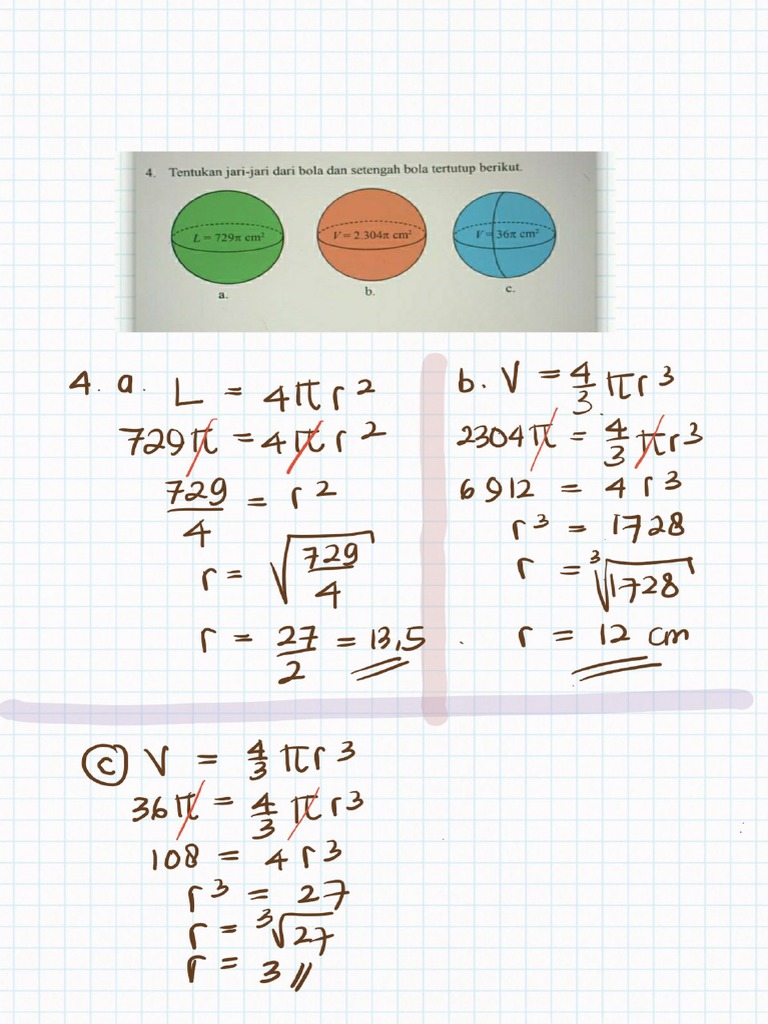 4. Tentukan jari-jari dari bola dan setengah bola tertutup berikut.
L = 729π cm²
V = 2.304π cm³
V = 36π cm³
a.
b.
c.
4. a. L = 4πr²
729π = 4πr²
729/4 = r²
r = √(729/4)
r = 27/2 = 13,5
b. V = 4/3 πr³
2304π = 4/3 πr³
6912 = 4r³
r³ = 1728
r = ³√1728
r = 12 cm
c V = 4/3 πr³
36π = 4/3 πr³
108 = 4r³
r³ = 27
r = ³√27
r = 3 //